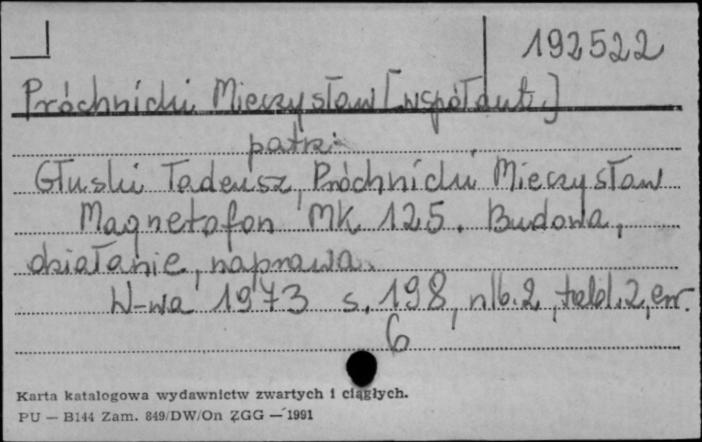 192522
Próchnicki Mieczysław [współaut.]
patrz:
Głuski Tadeusz, Próchnicki Mieczysław
Magnetofon MK 125. Budowa,
działanie, naprawa.
W-wa 1973 s. 198, nlb. 2, tabl. 2, err.
6
Karta katalogowa wydawnictw zwartych i ciągłych.
PU — B144 Zam. 849/DW/On ZGG — 1991